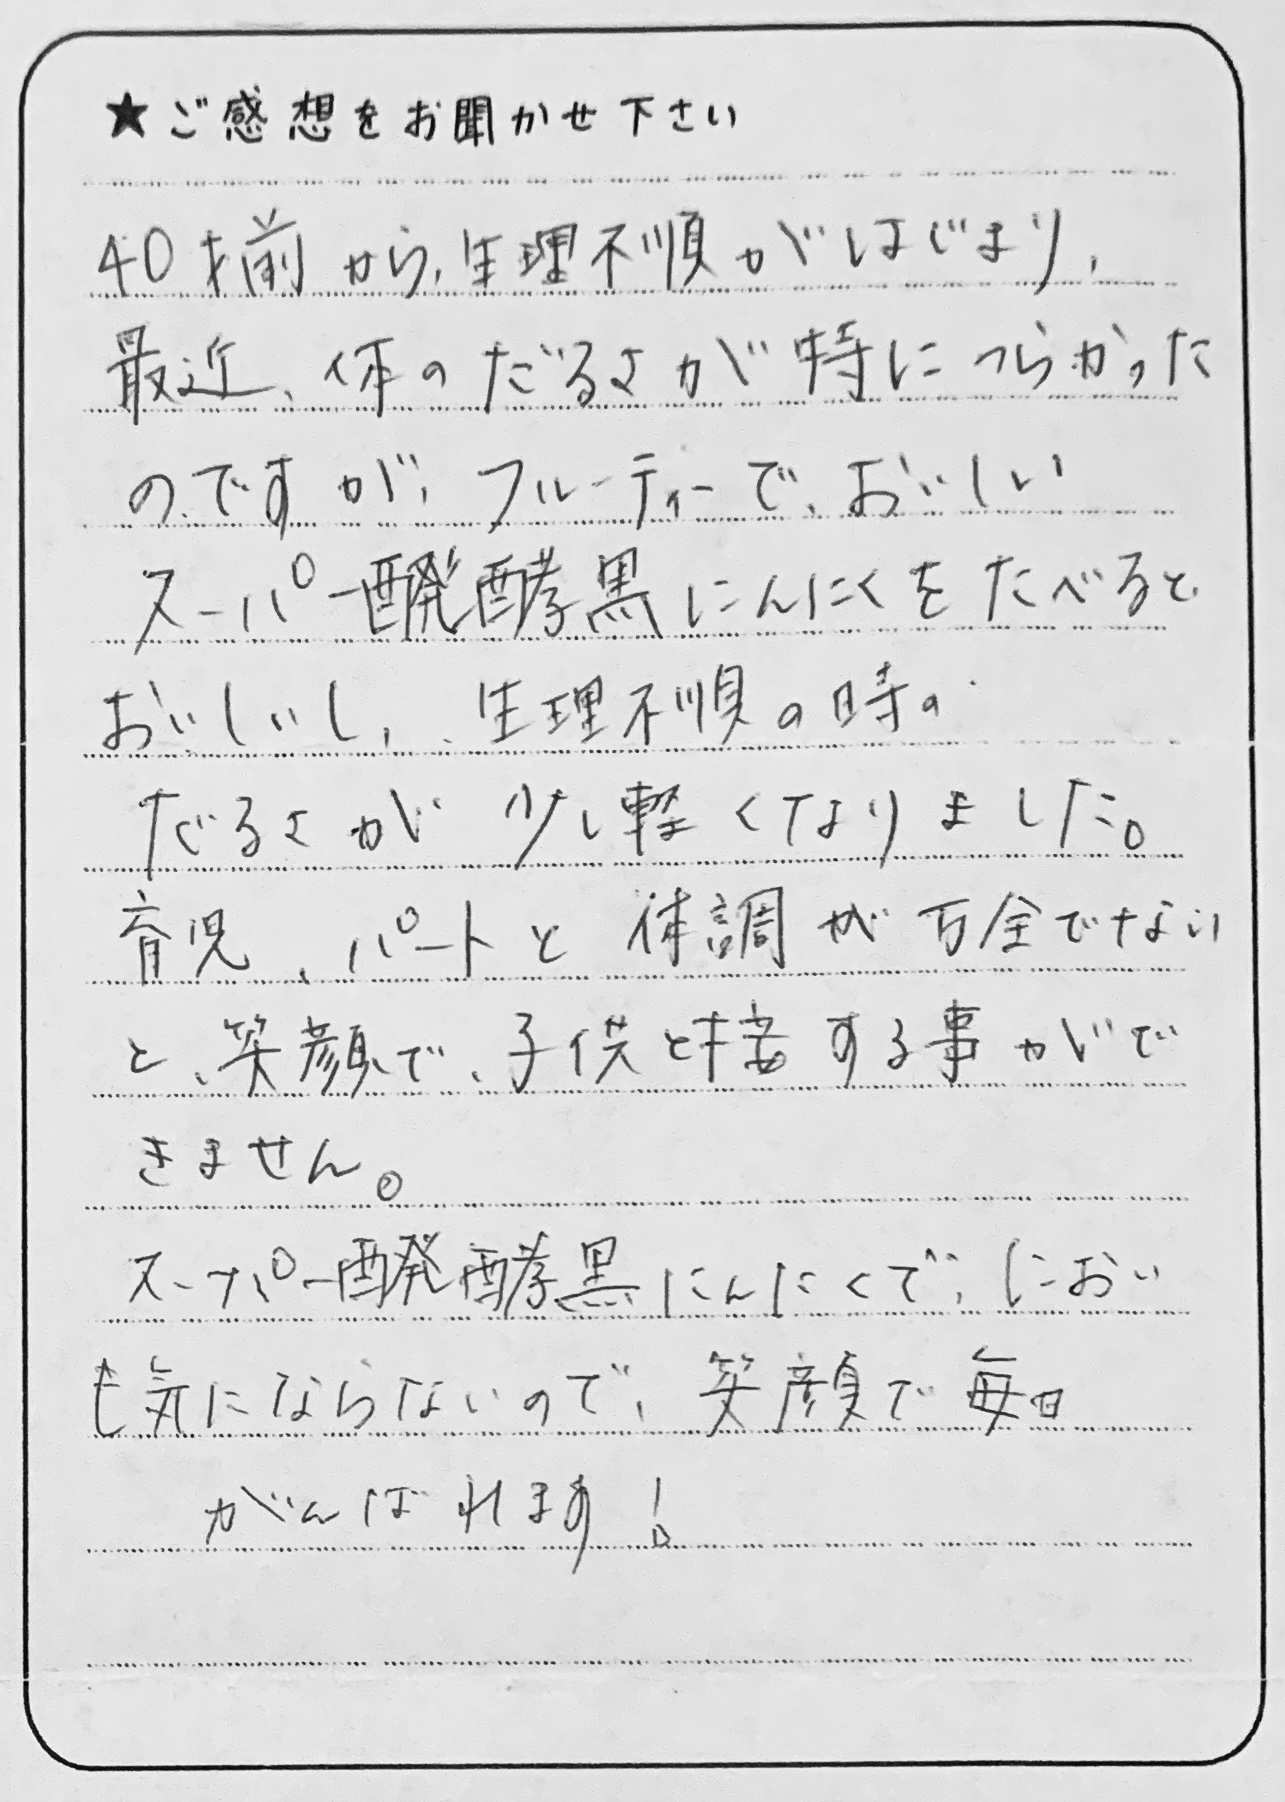 ★ご感想をお聞かせ下さい
40才前から、生理不順がはじまり、
最近、体のだるさが特につらかった
のですが、フルーティーで、おいしい
スーパー醗酵黒にんにくをたべると
おいしいし、生理不順の時の
だるさが少し軽くなりました。
育児、パートと体調が万全でない
と、笑顔で、子供と接する事がで
きません。
スーパー醗酵黒にんにくで、におい
も気にならないので、笑顔で毎日
がんばれます!